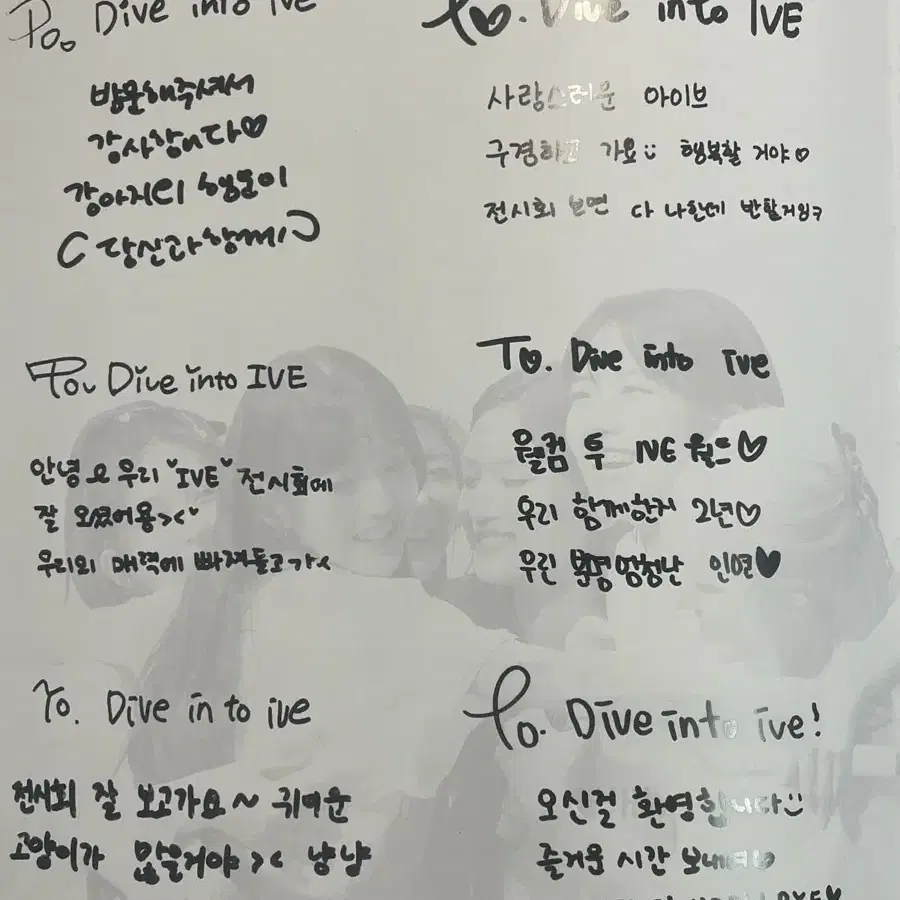 To. Dive into IVE
방문해주셔서
감사합니다♡
강아지의 행운이
(당신과 함께!)
To. Dive into IVE
사랑스러운 아이브
구경하고 가요 행복할 거야♡
전시회 보면 다 나한테 반할거임ㅋ
To. Dive into IVE
안녕요 우리 "IVE" 전시회에
잘 오셨어용><♥
우리의 매력에 빠져들고가<
To. Dive into ive
웰컴 투 IVE 월드♡
우리 함께한지 2년♡
우린 분명 엄청난 인연♥
To. Dive in to ive
전시회 잘 보고가요~ 귀여운
고양이가 많을거야>< 냥냥
To. Dive into ive!
오신걸 환영합니다
즐거운 시간 보내세요♡